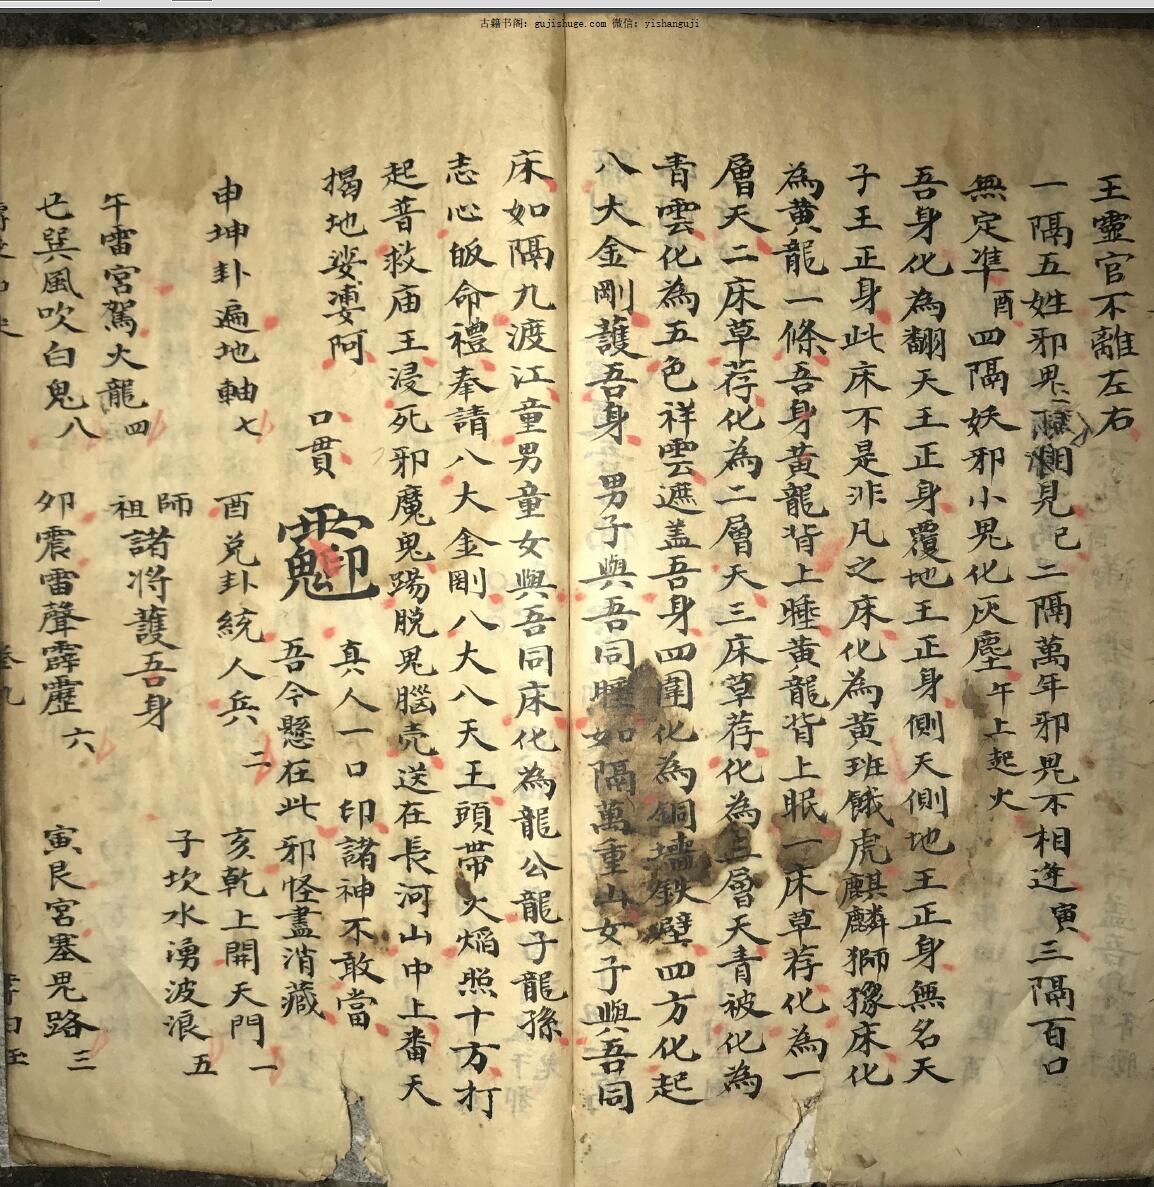 古籍书阁：gujishuge.com 微信：yishanguji
王靈官不離左右
一隔五姓邪鬼相見 巳 二隔萬年邪鬼不相逢 寅 三隔百口
無定準 酉 四隔妖邪小鬼化灰塵 午上起火
吾身化為翻天王正身覆地王正身側天側地王正身無名天
子王正身此床不是非凡之床化為黃班餓虎麒麟獅猿床化
為黃龍一條吾身黃龍背上睡黃龍背上眠一床草荐化為一
層天二床草荐化為二層天三床草荐化為三層天青被化為
青雲化為五色祥雲遮盖吾身四圍化為銅墻鉄壁四方化起
八大金剛護吾身 男子與吾同睡如隔萬重山女子與吾同
床如隔九渡江童男童女與吾同床化為龍公龍子龍孫
志心皈命禮奉請八大金剛八大八天王頭帶火焰照十方打
起普救庙王浸死邪魔鬼踢脱鬼腦壳送在長河山中上番天
揭地婆婆阿 真人一口印諸神不敢當
口貫 吾今懸在此邪怪盡消藏
申坤卦遍地軸 七 酉兌卦統人兵 二 亥乾上開天門 一
子坎水湧波浪 五
午雷宮駕火龍 四 祖師諸将護吾身
巳巽風吹白鬼 八 卯震雷聲霹靂 六 寅艮宮塞鬼路 三